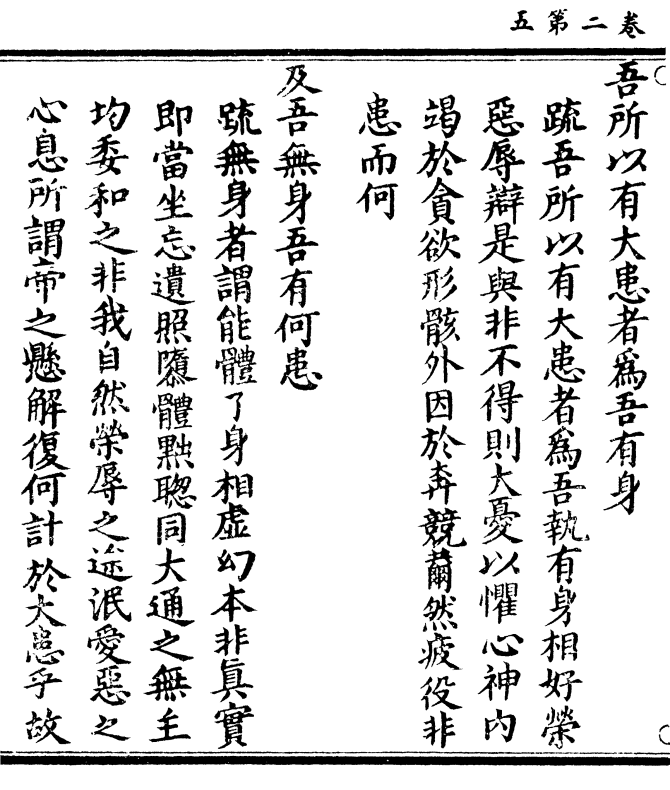 卷二第五
吾所以有大患者爲吾有身
疏吾所以有大患者爲吾執有身相好榮
惡辱辯是與非不得則大憂以懼心神内
竭於貪欲形骸外因於奔競薾然疲役非
患而何
及吾無身吾有何患
疏無身者謂能體了身相虛幻本非真實
即當坐忘遺照隳體黜聦同大通之無主
均委和之非我自然榮辱之途泯愛惡之
心息所謂帝之懸解復何計於大患乎故